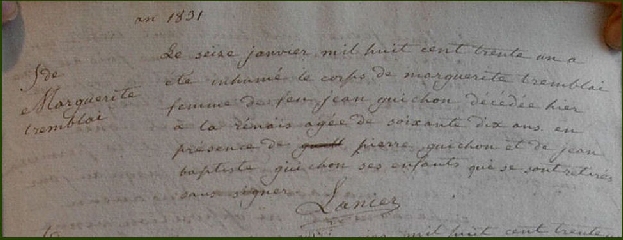 an 1831
Le seise janvier mil huit cent trente un a
Jde
été inhumé le corps de marguerite tremblai
Marguerite
femme de feu jean guichon décédée hier
tremblai
à la Rénais agée de soixante dix ans en
présence de pierre guichon et de jean
baptiste guichon ses enfants qui se sont retirés
sans signer
Lancer
mil huit cent trente